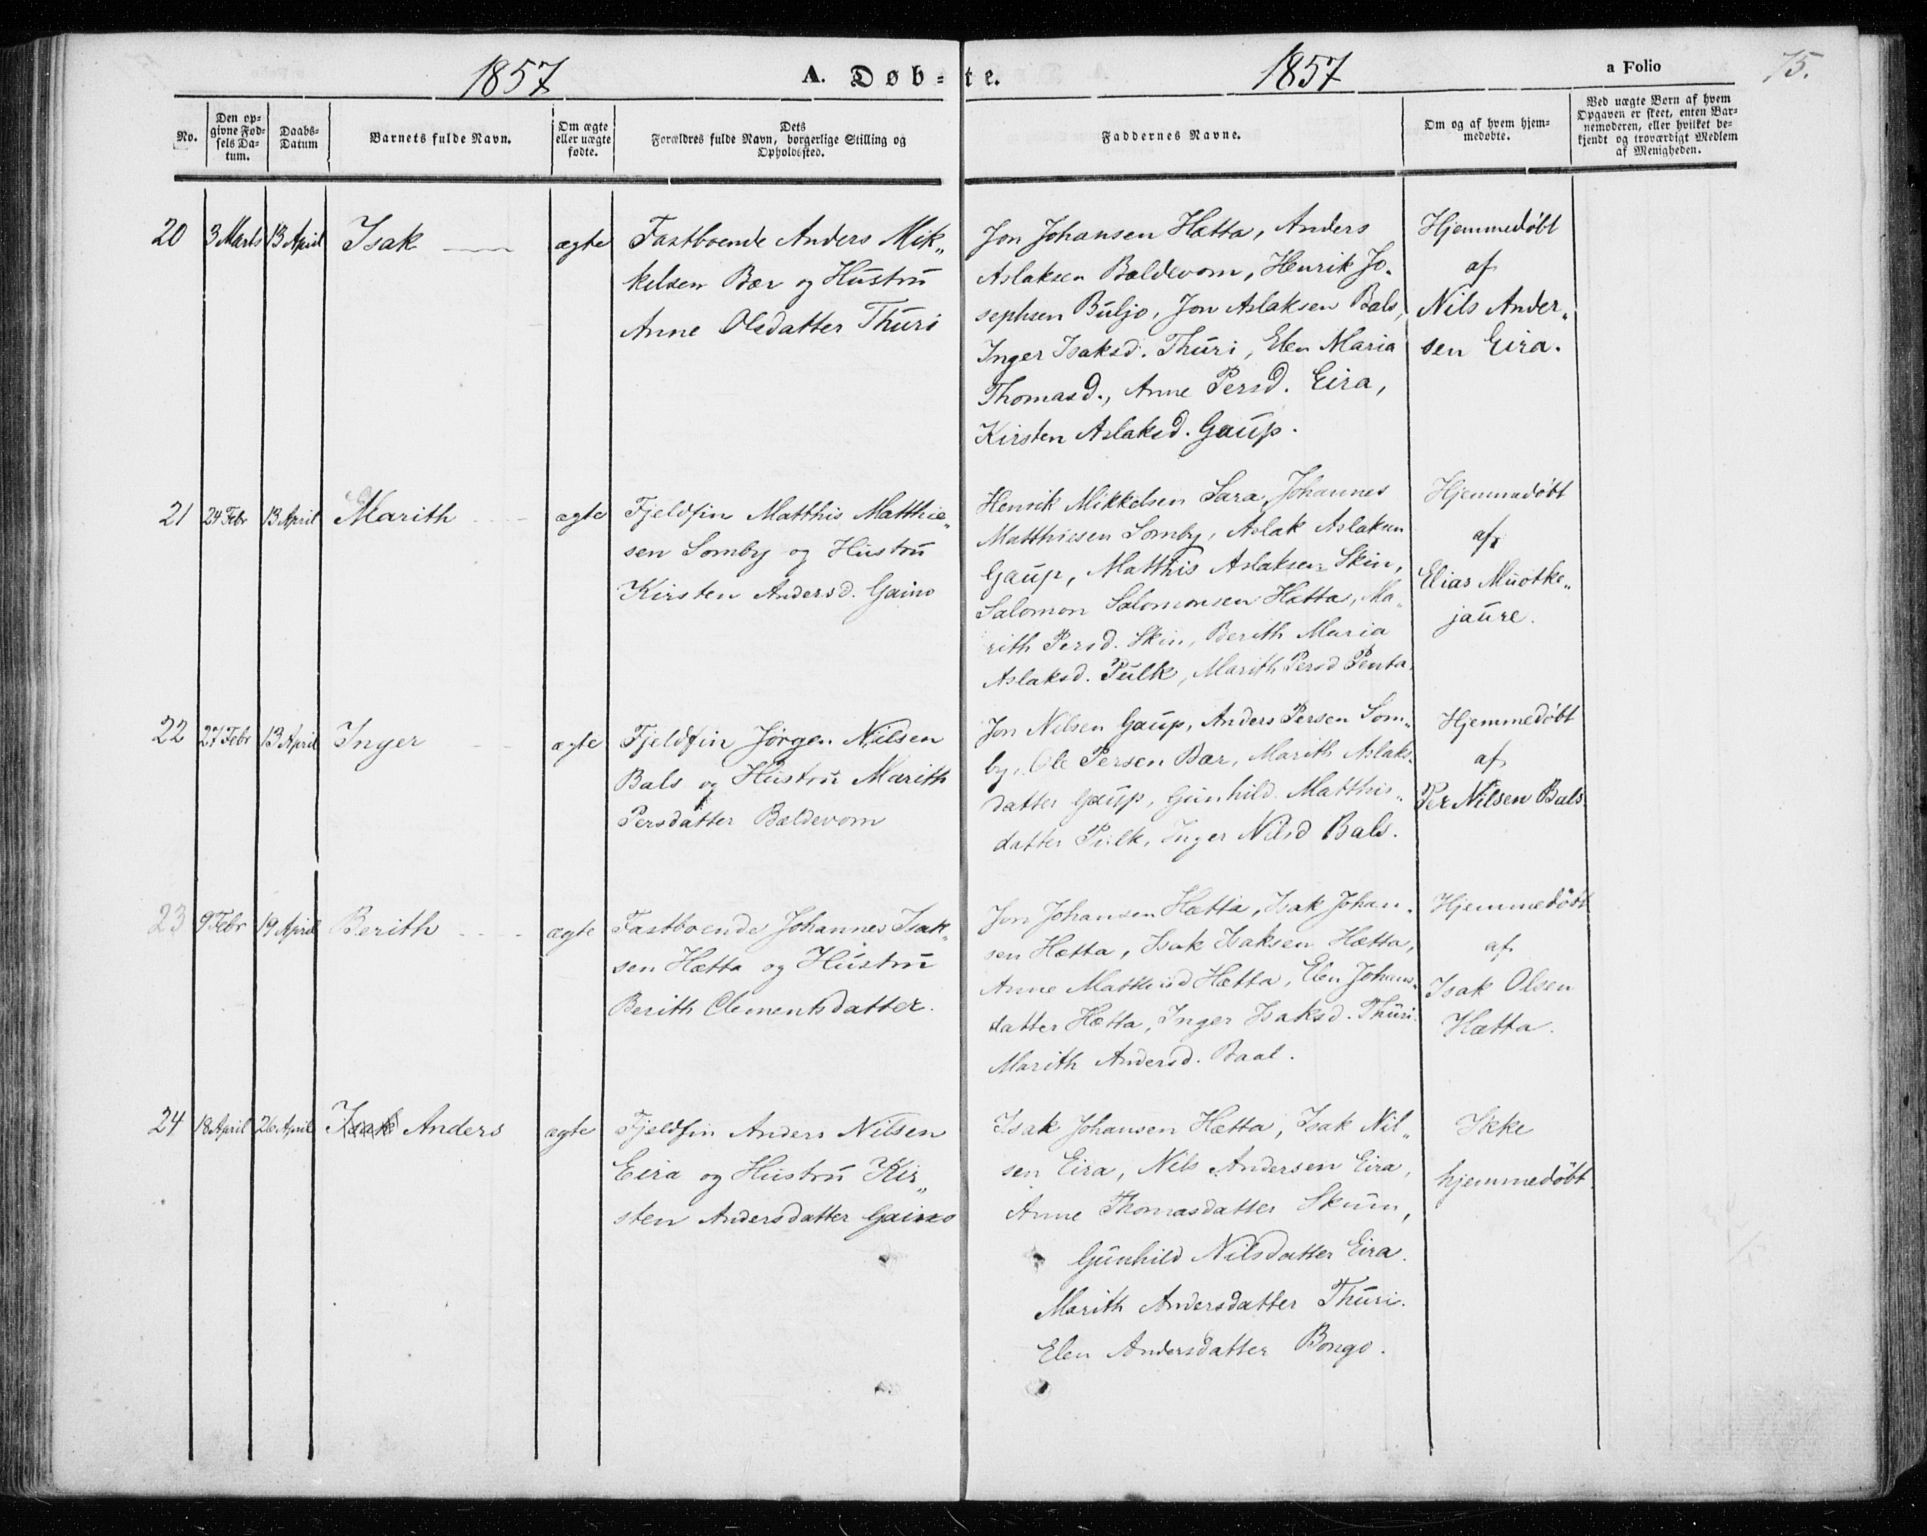 1857 A. Døb-te. 1857 a Folio 75.
No.
Den op-
givne Fød-
sels Da-
tum.
Daabs-
Datum
Barnets fulde Navn.
Om ægte
eller uægte
fødte.
Dets
Forældres fulde Navn, borgerlige Stilling og
Opholdssted.
Faddernes Navne.
Om og af hvem hjem-
medøbte.
Ved uægte Børn af hvem
Opgaven er skeet, enten Bar-
nemoderen, eller hvilket be-
kjendt og troværdigt Medlem
af Menigheden.
20 3 Marts 13 April Isak ægte
Fastboende Anders Mik„
kelsen Bær og Hustru
Anne Olsdatter Thuri
Jon Johansen Hætta, Anders
Aslaksen Bældevom, Henrik Jo-
sephsen Buljo, Jon Aslaksen Bals,
Inger Isaksd. Thuri, Elen Maria
Thomasd., Anne Persd. Eira,
Kirsten Aslaksd. Gaup.
Hjemmedøbt
af
Nils Ander„
sen Eira.
21 24 Febr 13 April Marith ægte
Fjeldfin Matthis Matthie„
sen Somby og Hustru
Kirsten Andersd. Gaino
Henrik Mikkelsen Sara, Johannes
Matthiesen Somby, Aslak Aslaksen
Gaup, Matthis Aslaksen Skin,
Salomon Salomonsen Hætta, Ma„
rith Persd. Skin, Berith Maria
Aslaksd. Pulk, Marith Persd Penta.
Hjemmedøbt
af
Elias Muotke„
jaure.
22 27 Febr 13 April Inger ægte
Fjeldfin Jørgen Nilsen
Bals og Hustru Marith
Persdatter Bældevom
Jon Nilsen Gaup, Anders Persen Som„
by, Ole Persen Bær, Marith Aslaks-
datter Gaup, Gunhild Matthis„
datter Pulk, Inger Nilsd Bals.
Hjemmedøbt
af
Per Nilsen Bals
23 9 Febr 19 April Berith ægte
Fastboende Johannes Isak-
sen Hætta og Hustru
Berith Clementsdatter.
Jon Johansen Hætta, Isak Johan-
sen Hætta, Isak Isaksen Hætta,
Anne Matthisd Hætta, Elen Johans-
datter Hætta, Inger Isaksd. Thuri.
Marith Andersd. Baal.
Hjemmedøbt
af
Isak Olsen
Hætta.
24 18 April 26 April Isak Anders ægte
Fjeldfin Anders Nilsen
Eira og Hustru Kir„
sten Andersdatter Gaino
Isak Johansen Hætta, Isak Nil„
sen Eira, Nils Andersen Eira,
Anne Thomasdatter Skum,
Gunhild Nilsdatter Eira.
Marith Andersdatter Thuri.
Elen Andersdatter Bongo.
Ikke
hjemmedøbt.